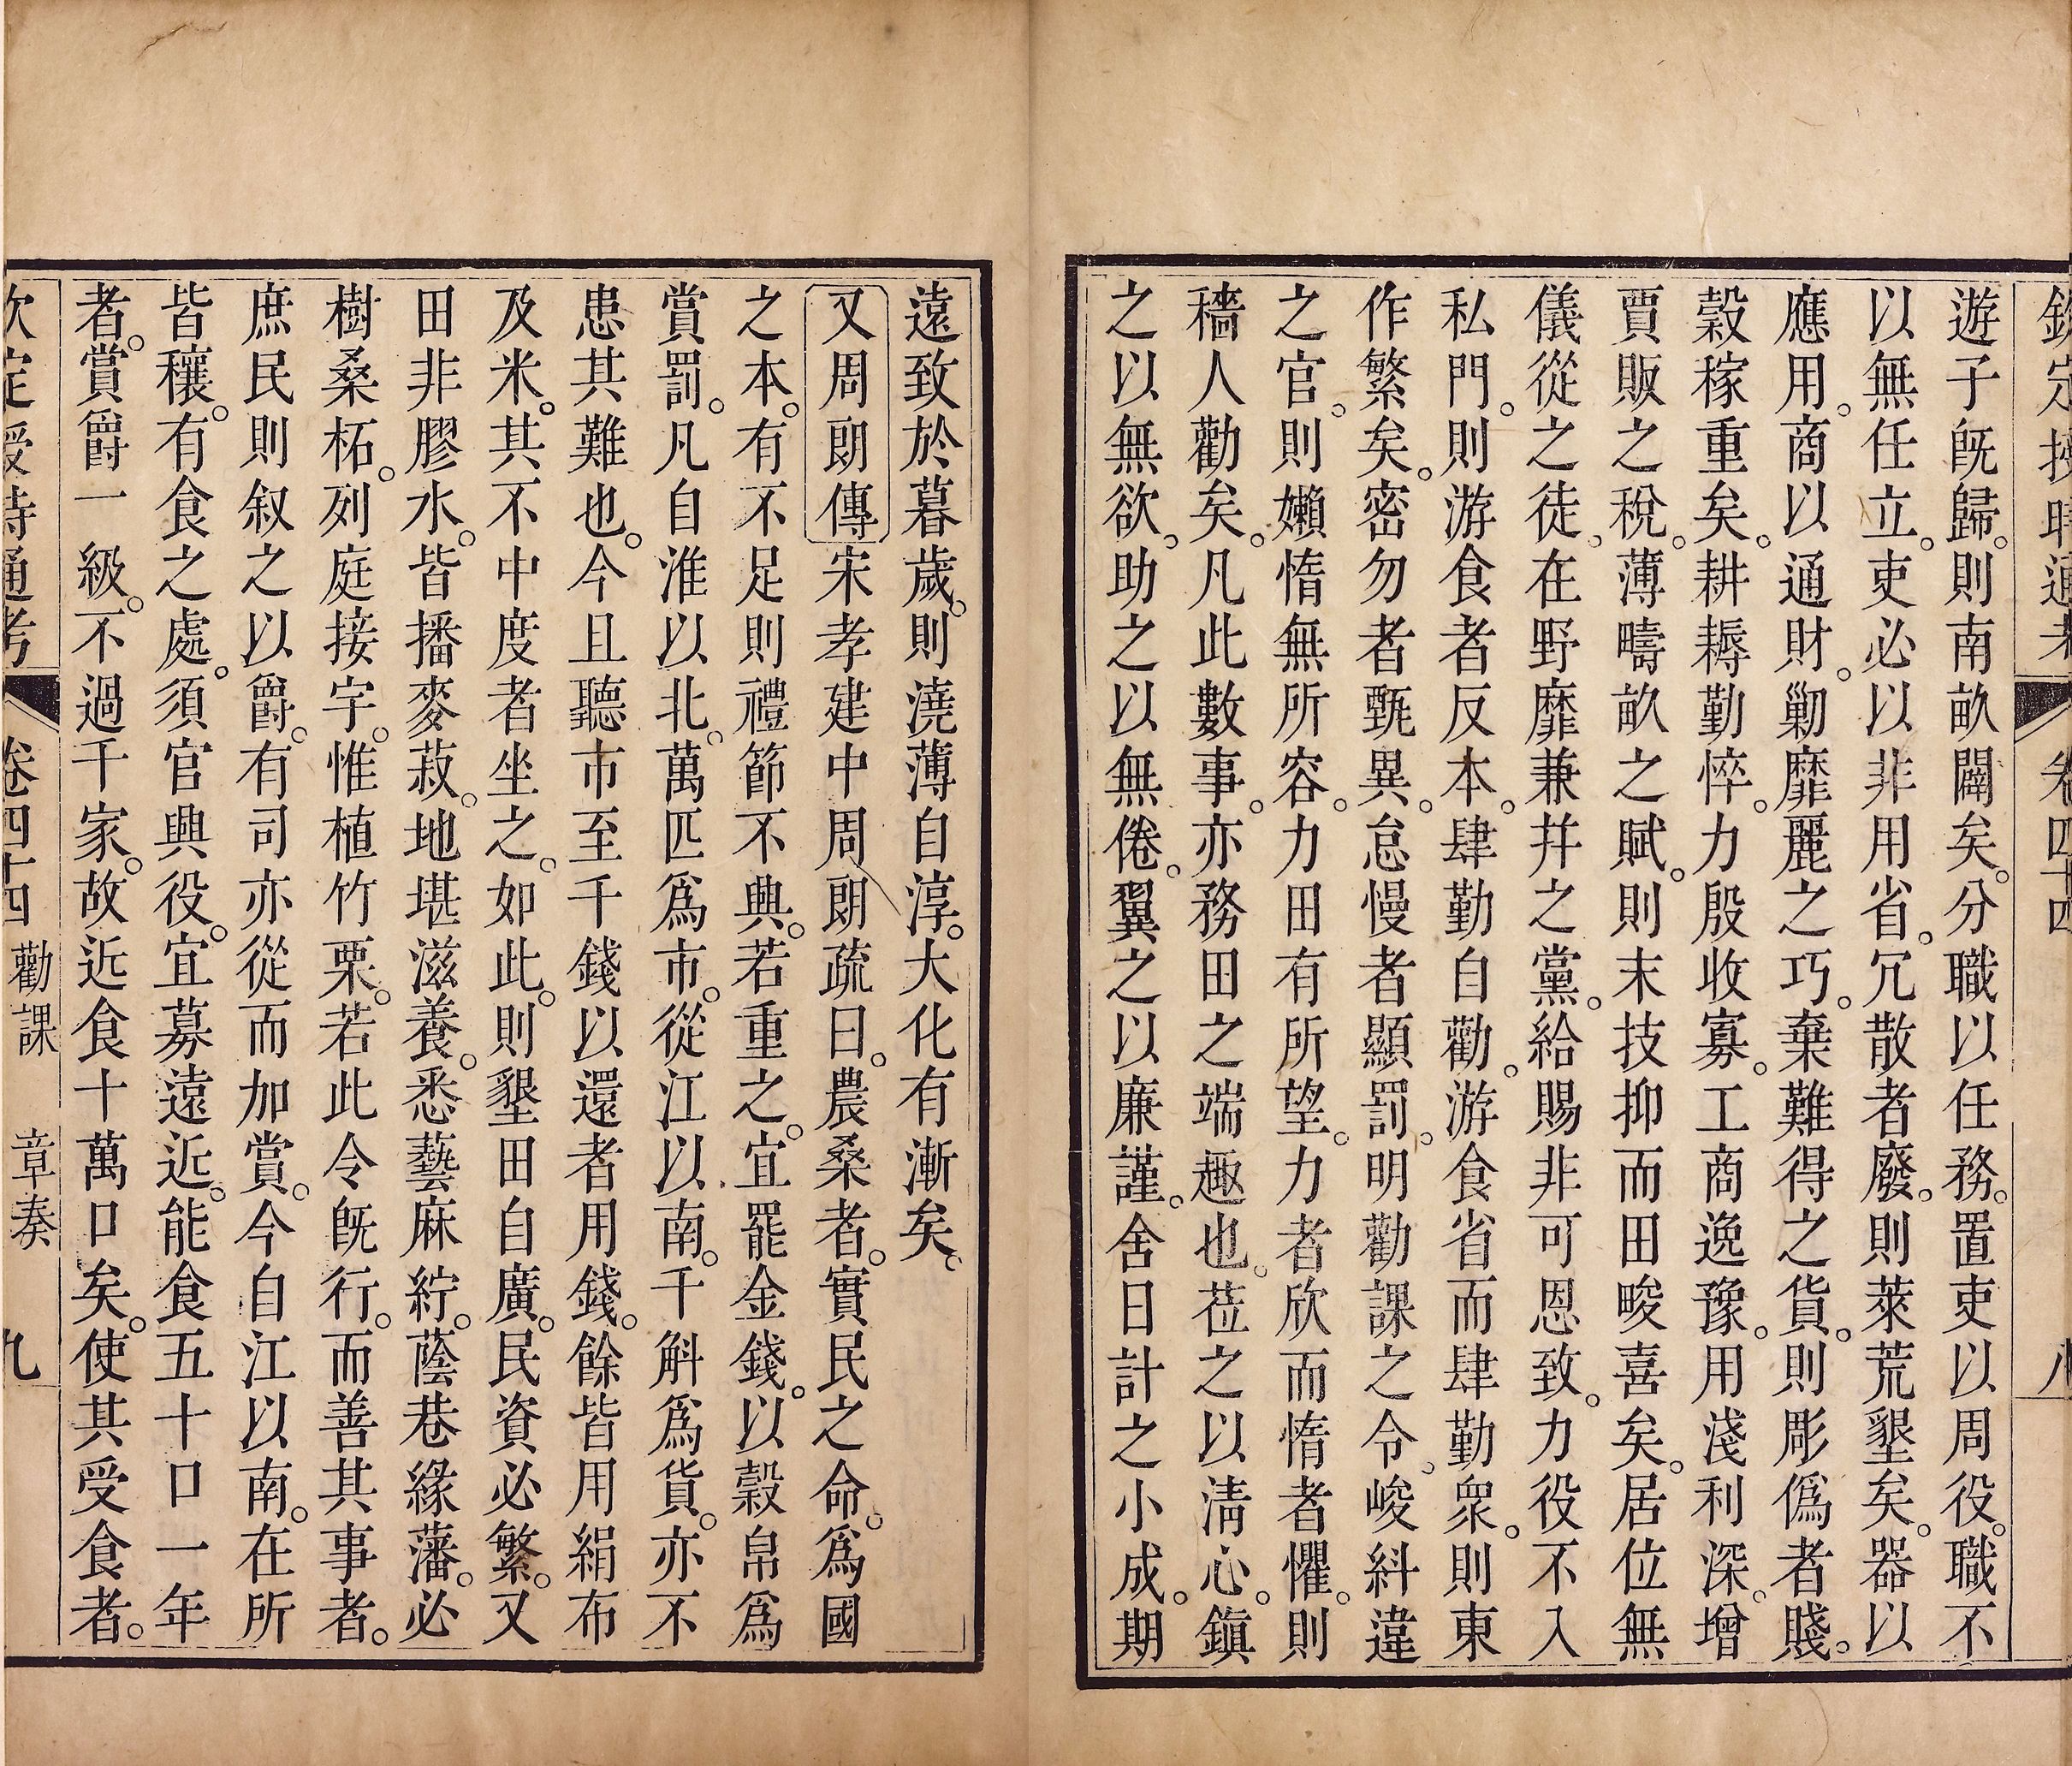 欽定授時通考
卷四十四
八
遊子旣歸。則南畝闢矣。分職以任務。置吏以周役。職不
以無任立。吏必以非用省。冗散者廢。則萊荒墾矣。器以
應用。商以通財。剿靡麗之巧。棄難得之貨。則彫僞者賤。
穀稼重矣。耕耨勤悴。力殷收寡。工商逸豫。用淺利深。增
賈販之稅。薄疇畝之賦。則末技抑而田畯喜矣。居位無
儀從之徒。在野靡兼幷之黨。給賜非可恩致。力役不入
私門。則游食者反本。肆勤自勸。游食省而肆勤衆。則東
作繁矣。密勿者甄異。怠慢者顯罰。明勸課之令。峻糾違
之官。則嬾惰無所容。力田有所望。力者欣而惰者懼。則
穡人勸矣。凡此數事。亦務田之端趣也。莅之以淸心。鎭
之以無欲。助之以無倦。翼之以廉謹。舍日計之小成。期
遠致於暮歲。則澆薄自淳。大化有漸矣。
又周朗傳宋孝建中周朗疏曰。農桑者。實民之命。爲國
之本。有不足則禮節不興。若重之。宜罷金錢。以穀帛爲
賞罰。凡自淮以北。萬匹爲市。從江以南。千斛爲貨。亦不
患其難也。今且聽市至千錢以還者用錢。餘皆用絹布
及米。其不中度者坐之。如此。則墾田自廣。民資必繁。又
田非膠水。皆播麥菽。地堪滋養。悉藝麻紵。蔭巷緣藩。必
樹桑柘。列庭接宇。惟植竹栗。若此令旣行。而善其事者。
庶民則叙之以爵。有司亦從而加賞。今自江以南。在所
皆穰。有食之處。須官興役。宜募遠近。能食五十口一年
者。賞爵一級。不過千家。故近食十萬口矣。使其受食者。
欽定授時通考
卷四十四
勸課 章奏
九